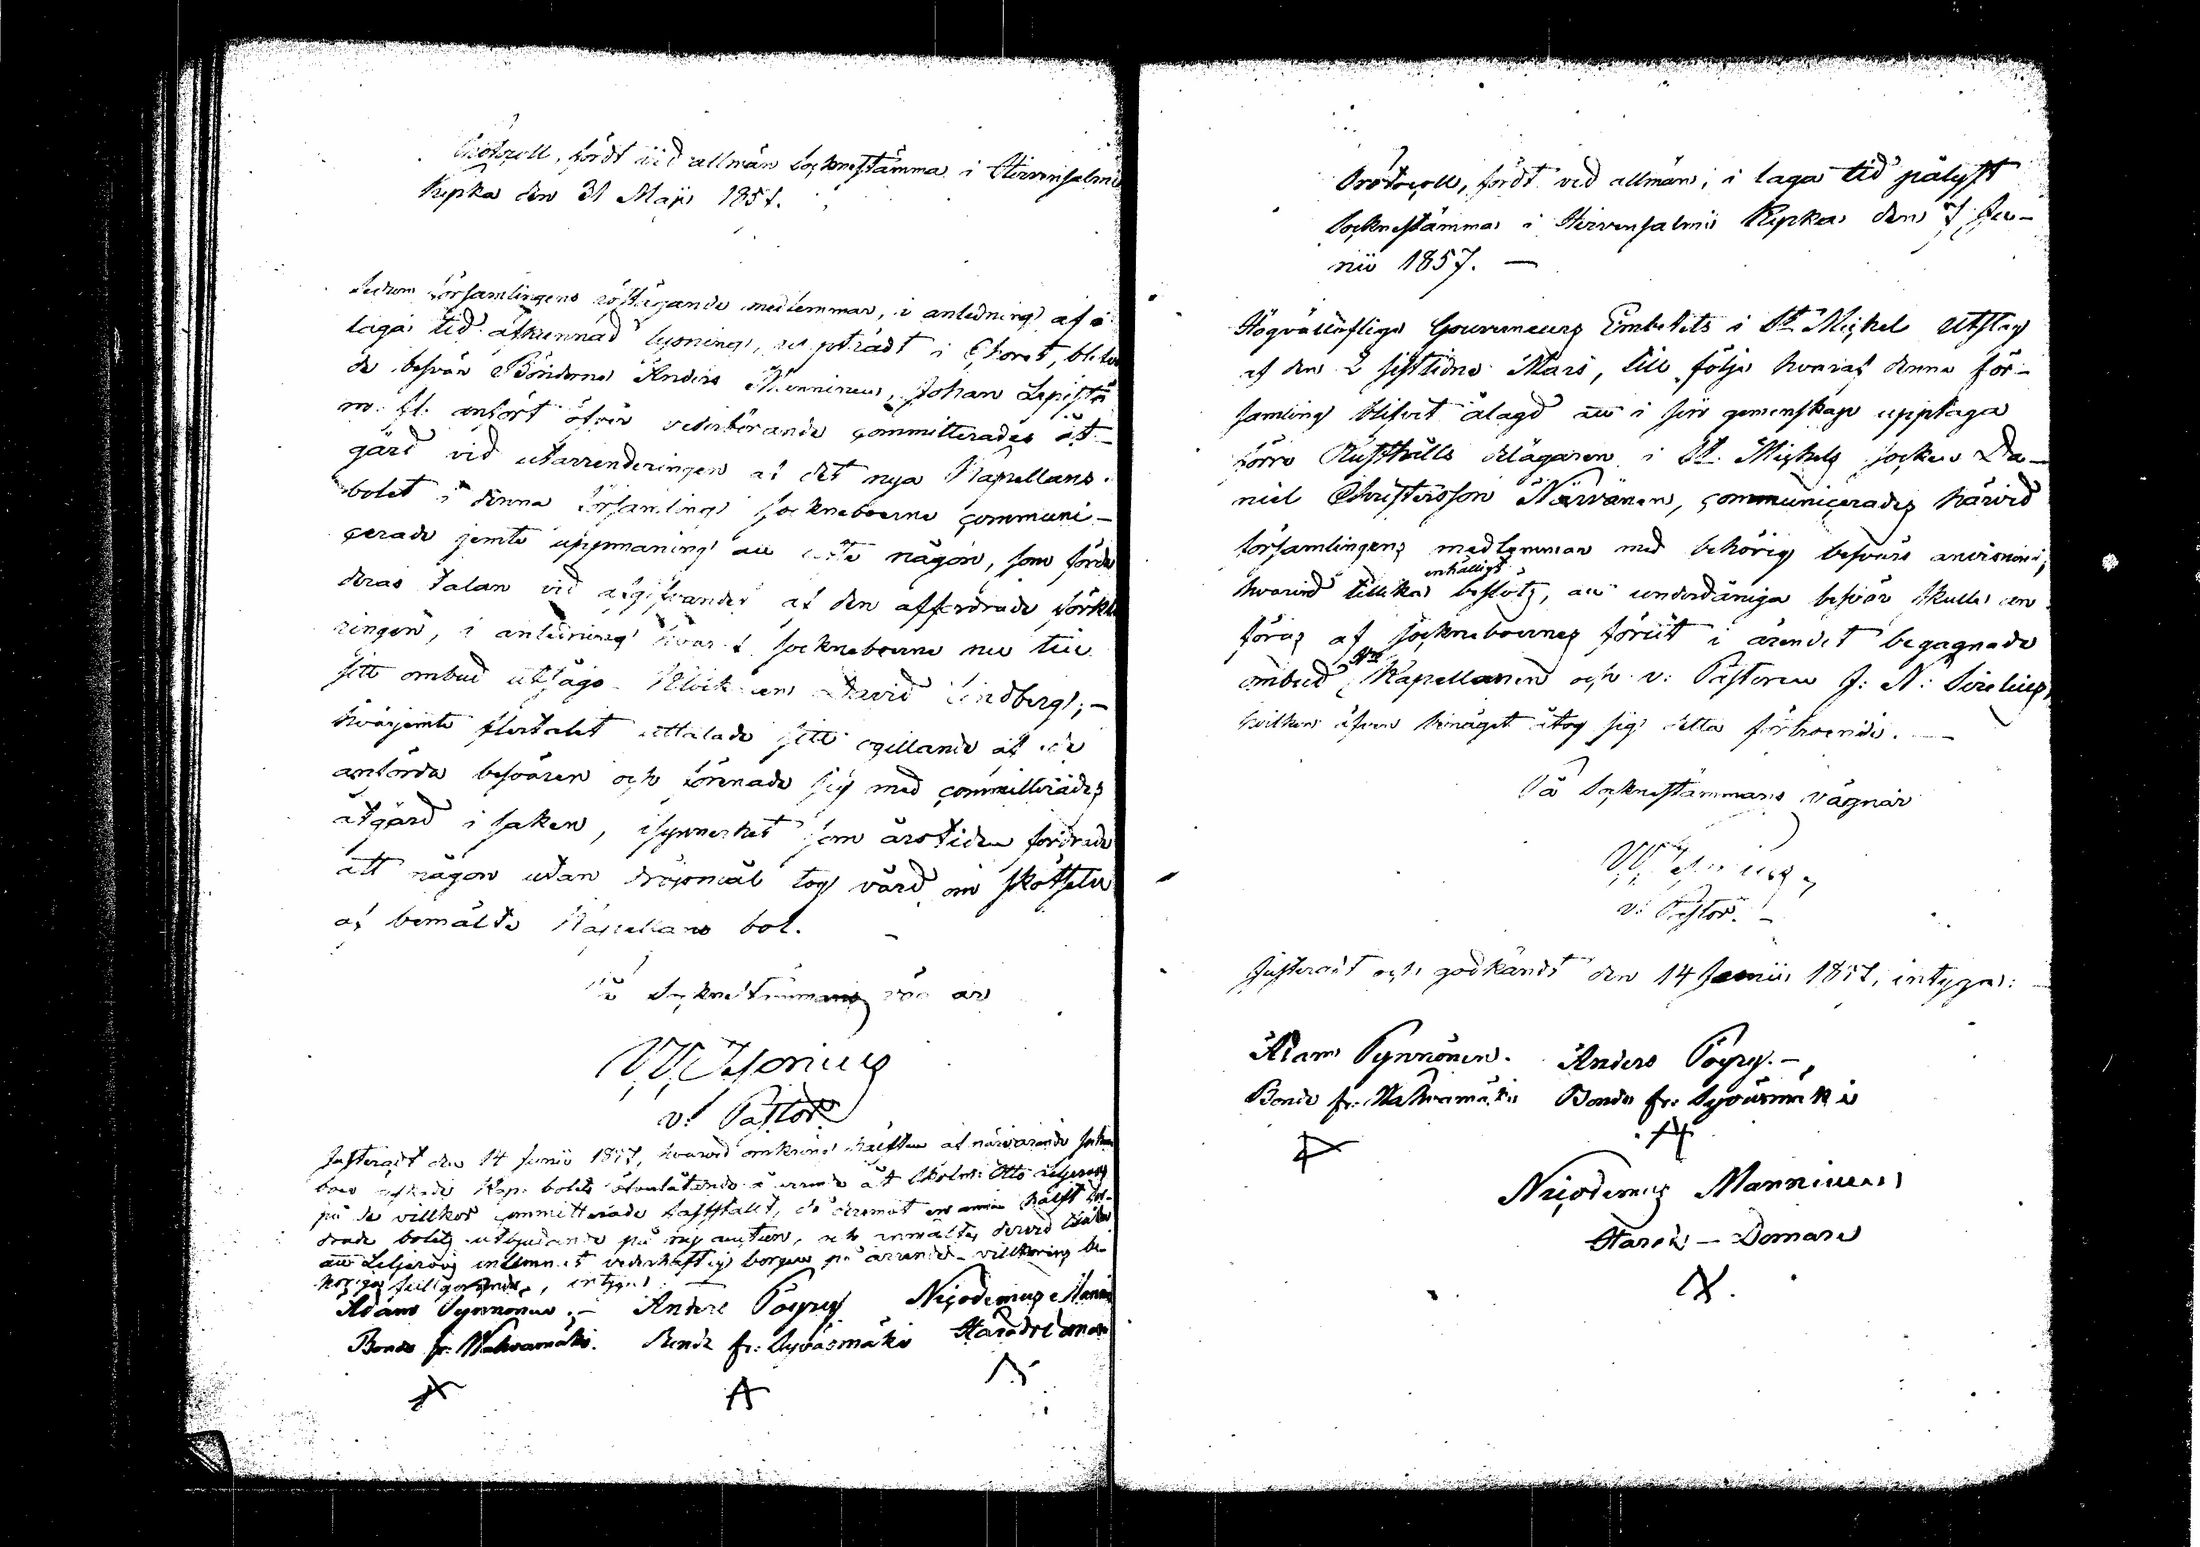 Protocoll, fördt vid allmän Socknestämma i Hirvensalmi
Kyrka den 31 Maji 1857.
Sedan församlingens röstägande medlemmar, i anledning af i
laga tid afkunnad lysning, nu uppträdt i Choret, blefvo
de besvär Bönderne Anders Manninen, Johan Lapistö
m. fl. anfört öfver vederbörande committerades åt-
gärd vid utarrenderingen af det nya Kapellans
bolet i denna församling sockneboerne communi-
cerade jemte uppmaning att utse någon, som förde
deras talan vid afgifvandet af den affordrade förkla
ringen, i anledning hvaraf sockneboerne nu till
sitt ombud utsågo Klockaren David Lindberg; -
hvarjemte flertalet uttalade sitt ogillande af de
anförda besvären och förenade sig med committerades
åtgärd i saken, isynnerhet som årstiden fordrade
att någon utan dröjsmål tog vård om skötseln
af bemälte Kapellans bol.
På Socknestämmans vägnar
W. Ursinus
v. Pastor.
Justeradt den 14 Junii 1857, hvarvid omkring hälften af närvarande
boer Kap. bolets öfverlåtande åt Otto Liljeroos
på de villkor committerade fastställt, då deremot en annan hälft for-
drade bolets utbjudande på ny auction, och anmältes dervid
att Liljeroos inlemnat vederhäftig borgen på arrende-villkorens be-
höriga fullgörande, intyga:
Adam Pynnönen. - Anders Pöyry Nicodemus Manni
Bonde fr: Wahvamäki. Bonde fr: Syväsmäki Häradsdomare
Protocoll, fördt vid allmän, i laga tid pålyst
Socknestämma i Hirvensalmi Kyrka den 7 Ju-
nii 1857. -
Högvälloflige Gouverneurs Embetets i St Michel Utslag
af den 2 sistlidne Mars, till följe hvaraf denna för-
samling blifvit ålagd att i sin gemenskap upptaga
förre Rusthålls delägaren i St. Michels socken Da-
niel Christersson Närvänen, communicerades härvid
församlingens medlemmar med behörig besvärs anvisning,
hvarvid tillika enhälligt beslöts, att underdåniga besvär skulle an
föras af socknebornes förut i ärendet begagnade
ombud Hrr Kapellanen och v. Pastoren J. N. Sirelius,
hvilken äfven benäget åtog sig detta förtroende. -
På Socknestämmans vägnar
W. Ursinus
v. Pastor. -
Justeradt och godkändt den 14 Junii 1857, intyga: -
Adam Pynnönen. Anders Pöyry. -
Bonde fr: Wahvamäki Bonde fr: Syväsmäki
Nicodemus Manninen
Härads-Domare